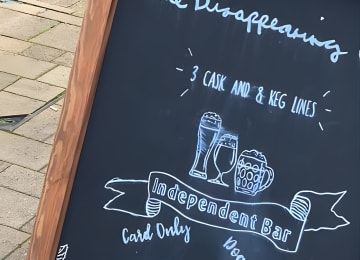 The Disappearing
3 CASK AND 8 KEG LINES
Independent Bar
Card Only